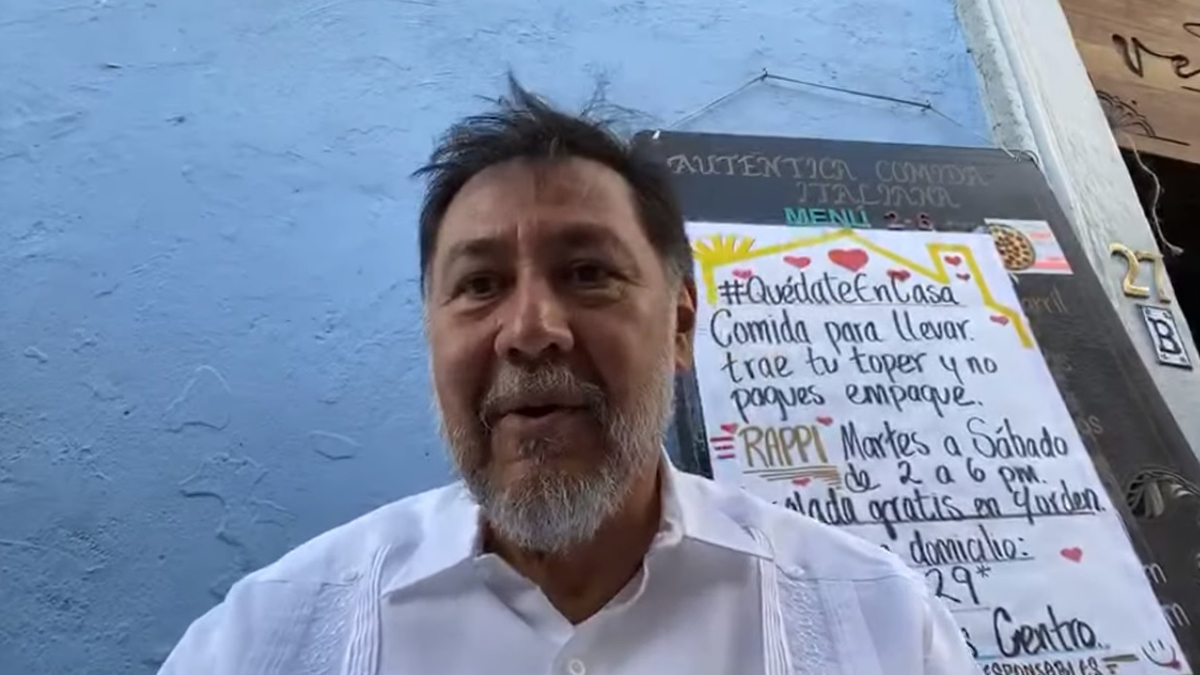 AUTÉNTICA COMIDA
ITALIANA
MENÚ 2-6
#QuédateEnCasa
Comida para llevar.
trae tu toper y no
pagues empaque.
RAPPI Martes a Sábado
de 2 a 6 pm.
gratis en
domicilio:
29*
Centro.
27
B